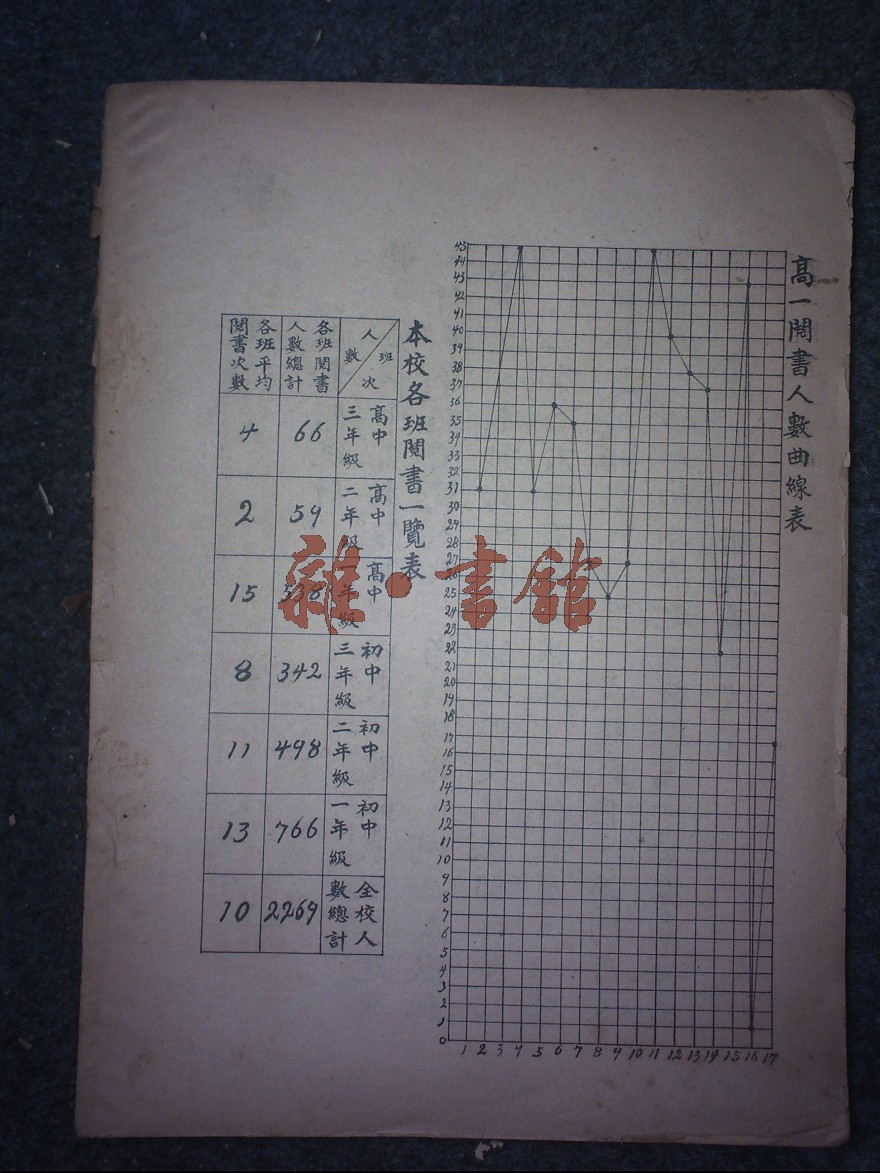 高一閱書人數曲線表
45
44
43
42
41
40
39
38
37
36
35
34
33
32
31
30
29
28
27
26
25
24
23
22
21
20
19
18
17
16
15
14
13
12
11
10
9
8
7
6
5
4
3
2
1
0
1 2 3 4 5 6 7 8 9 10 11 12 13 14 15 16 17
本校各班閱書一覽表
人數
班次
各班閱書
人數總計
各班平均
閱書次數
高中
三年級
66
4
高中
二年級
59
2
高中
一年級
538
15
初中
三年級
342
8
初中
二年級
498
11
初中
一年級
766
13
全校人
數總計
2269
10
雜·書館